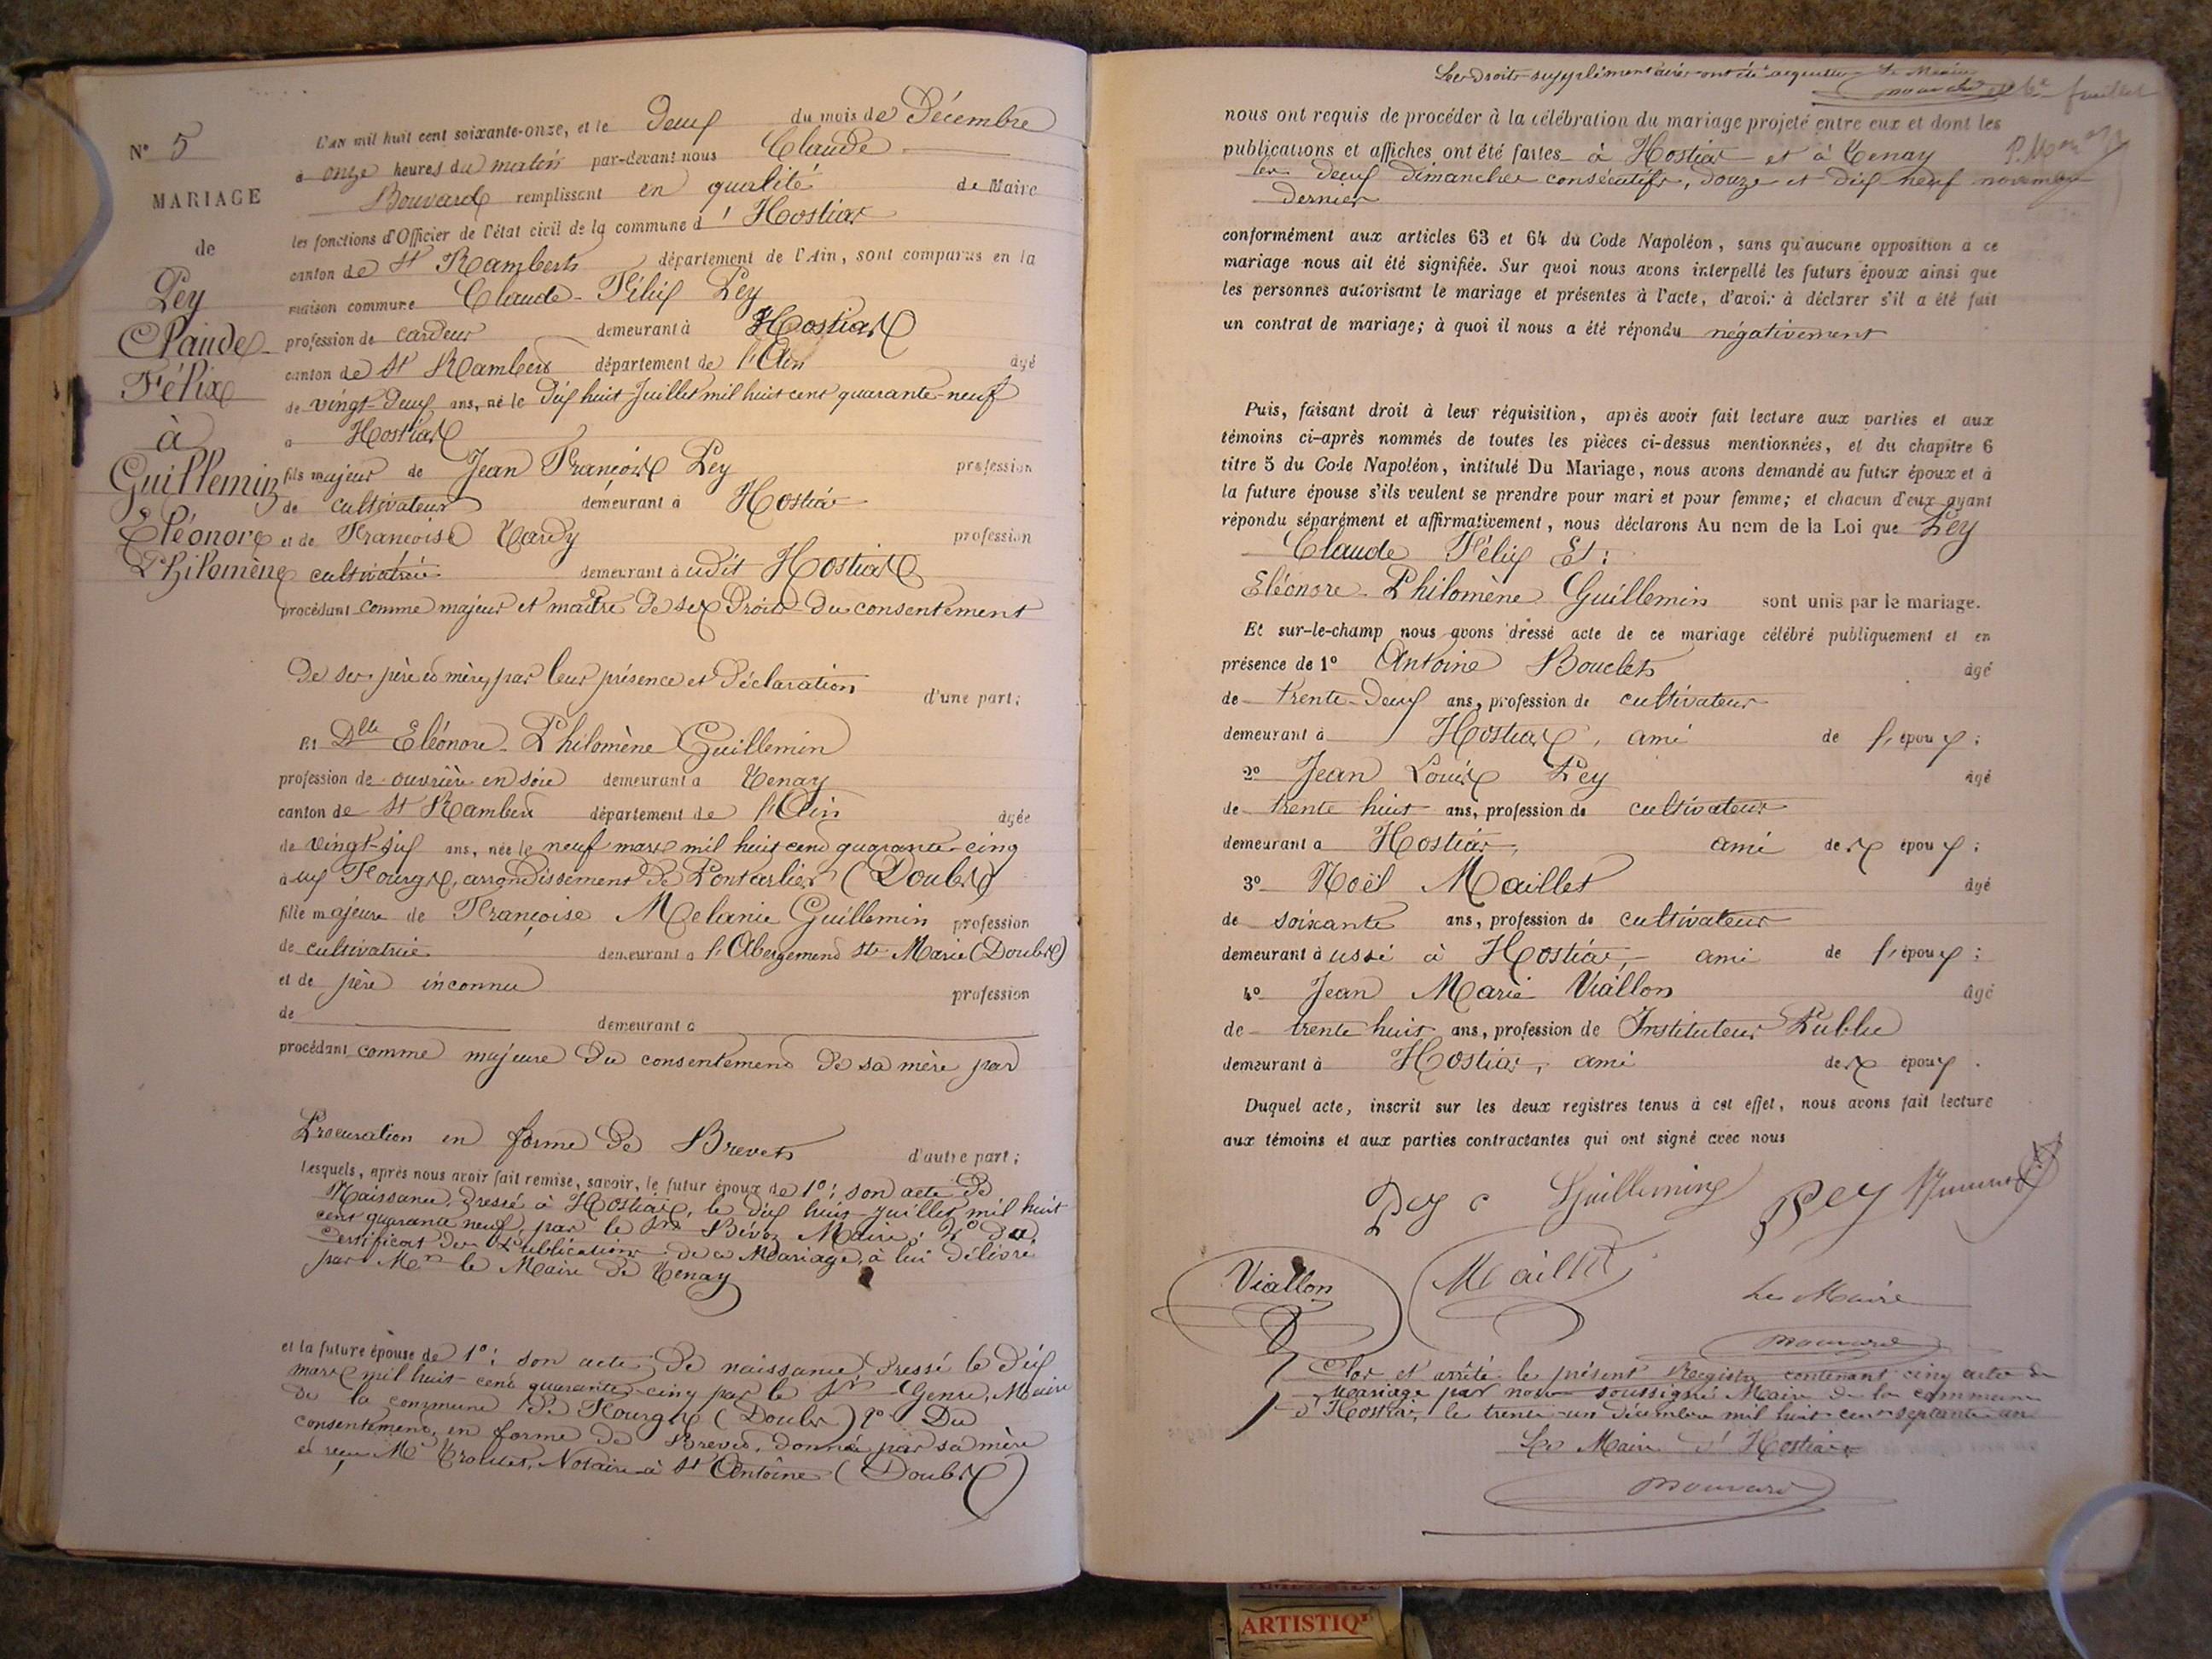 N° 5
MARIAGE
de
Pey
Claude
Félix
à
Guillemin
Eléonore
Philomène
L'AN mil huit cent soixante-onze, et le deux du mois de Décembre
à onze heures du matin par-devant nous Claude
Bouvard remplissant en qualité de Maire
les fonctions d'Officier de l'état civil de la commune d'Hostiax
canton de St Rambert département de l'Ain, sont comparus en la
maison commune Claude-Félix Pey
profession de cardeur demeurant à Hostiax
canton de St Rambert département de l'Ain âgé
de vingt-deux ans, né le dix huit Juillet mil huit cent quarante-neuf
à Hostiax
fils majeur de Jean François Pey profession
de cultivateur demeurant à Hostiax
et de Françoise Tardy profession
cultivatrice demeurant àudit Hostiax
procédant comme majeur et maître de ses droits du consentement
de ses père et mère, par leur présence et déclaration d'une part;
Et Dlle Eléonore-Philomène Guillemin
profession de ouvrière en soie demeurant à Tenay
canton de St Rambert département de l'Ain âgée
de vingt-six ans, née le neuf mars mil huit cent quarante cinq
à ux Fourgs, arrondissement de Pontarlier (Doubs)
fille majeure de Françoise Melanie Guillemin profession
de cultivatrice demeurant à l'Abergement Ste Marie (Doubs)
et de père inconnu profession
de demeurant à
procédant comme majeure du consentement de sa mère par
Procuration en forme de Brevet d'autre part;
Lesquels, après nous avoir fait remise, savoir, le futur époux de 1°: son acte de
Naissance, dressé à Hostiax, le dix huit Juillet mil huit
cent quarante neuf, par le Sr Maire; 2° du
certificat des Publications de ce Mariage, à lui délivré
par Mr le Maire de Tenay
et la future épouse de 1°: son acte de naissance dressé le dix
mars mil huit-cent quarante-cinq par le Sr Maire
de la commune de Fourgs (Doubs) 2° Du
consentement, en forme de Brevet, donné par sa mère
et reçu Me Notaire à St Antoine (Doubs)
Les droits supplémentaires ont été acquittés Le Maire
6e feuillet
nous ont requis de procéder à la célébration du mariage projeté entre eux et dont les
publications et affiches ont été faites à Hostiax et à Tenay
les deux dimanches consécutifs, douze et dix neuf novembre
dernier
conformément aux articles 63 et 64 du Code Napoléon, sans qu'aucune opposition à ce
mariage nous ait été signifiée. Sur quoi nous avons interpellé les futurs époux ainsi que
les personnes autorisant le mariage et présentes à l'acte, d'avoir à déclarer s'il a été fait
un contrat de mariage; à quoi il nous a été répondu négativement
Puis, faisant droit à leur réquisition, après avoir fait lecture aux parties et aux
témoins ci-après nommés de toutes les pièces ci-dessus mentionnées, et du chapitre 6
titre 5 du Code Napoléon, intitulé Du Mariage, nous avons demandé au futur époux et à
la future épouse s'ils veulent se prendre pour mari et pour femme; et chacun d'eux ayant
répondu séparément et affirmativement, nous déclarons Au nom de la Loi que Pey
Claude Félix Et:
Eléonore-Philomène Guillemin sont unis par le mariage.
Et sur-le-champ nous avons dressé acte de ce mariage célébré publiquement et en
présence de 1° Antoine Bouclet âgé
de trente-deux ans, profession de cultivateur
demeurant à Hostiax, ami de l'époux;
2° Jean Louis Pey âgé
de trente huit ans, profession de cultivateur
demeurant à Hostiax, ami des époux;
3° Noël Maillet âgé
de soixante ans, profession de cultivateur
demeurant àussi à Hostiax, ami de l'époux;
4° Jean Marie Viallon âgé
de trente huit ans, profession de Instituteur Public
demeurant à Hostiax, ami des époux.
Duquel acte, inscrit sur les deux registres tenus à cet effet, nous avons fait lecture
aux témoins et aux parties contractantes qui ont signé avec nous
Pey c Guillemin Pey
Viallon Maillet Le Maire
Bouvard
Clos et arrêté le présent Registre contenant cinq actes de
Mariage par nous soussigné Maire de la commune
d'Hostiax, le trente-un décembre mil huit cent septante un
Le Maire d'Hostiax
Bouvard
ARTISTIQ